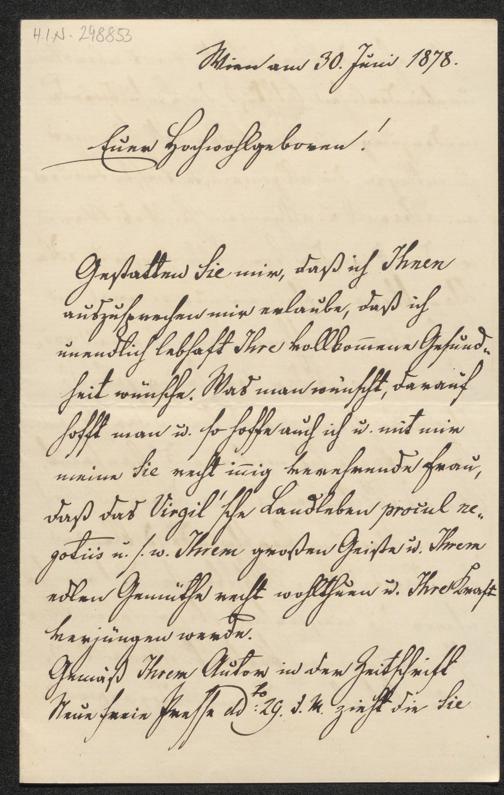 H.I.N. 248853
Wien am 30. Juni 1878.
Euer Hochwohlgeboren!
Gestatten Sie mir, daß ich Ihnen
auszusprechen mir erlaube, daß ich
unendlich lebhaft Ihre vollkommene Gesund-
heit wünsche. Was man wünscht, darauf
hofft man u. so hoffe auch ich u. mit mir
meine Sie recht innig verehrende Frau,
daß das Virgil'sche Landleben procul ne-
gotiis u. s. w. Ihrem großen Geiste u. Ihrem
edlen Gemüthe recht wohlthuen u. Ihre Kraft
verjüngen werde.
Gemäß Ihrem Autor in der Zeitschrift
Neue freie Presse ad 29. d. M. zieht die Sie